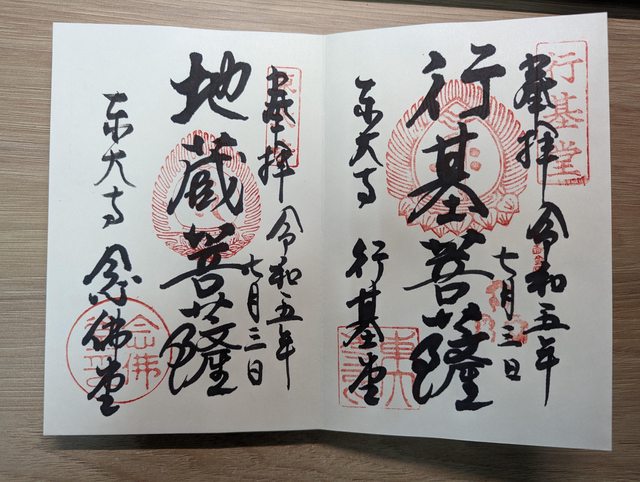 行基堂
奉拝
令和五年
七月三日
行基菩薩
東大寺
行基堂
奉拝
令和五年
七月三日
地蔵菩薩
東大寺
念佛堂
念佛